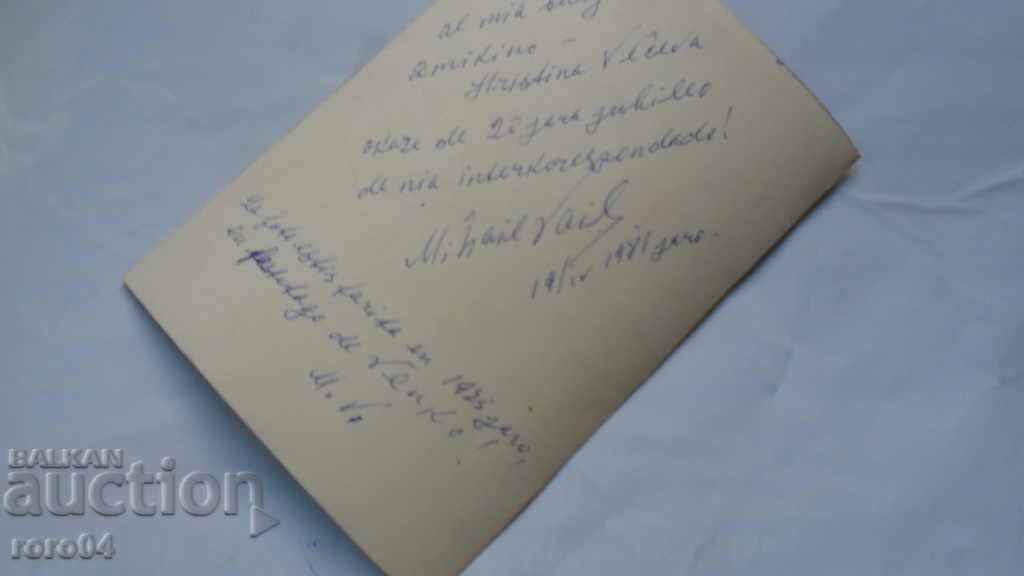 al mia
amikino –
Hristina Vêleva
okaze de 20 jara jubileo
de nia interkorespondado!
Mihail
19/IV 1981 jaro.
La foto estis farita en 1935 jaro,
en de
M. V.
BALKAN
auction
roro04